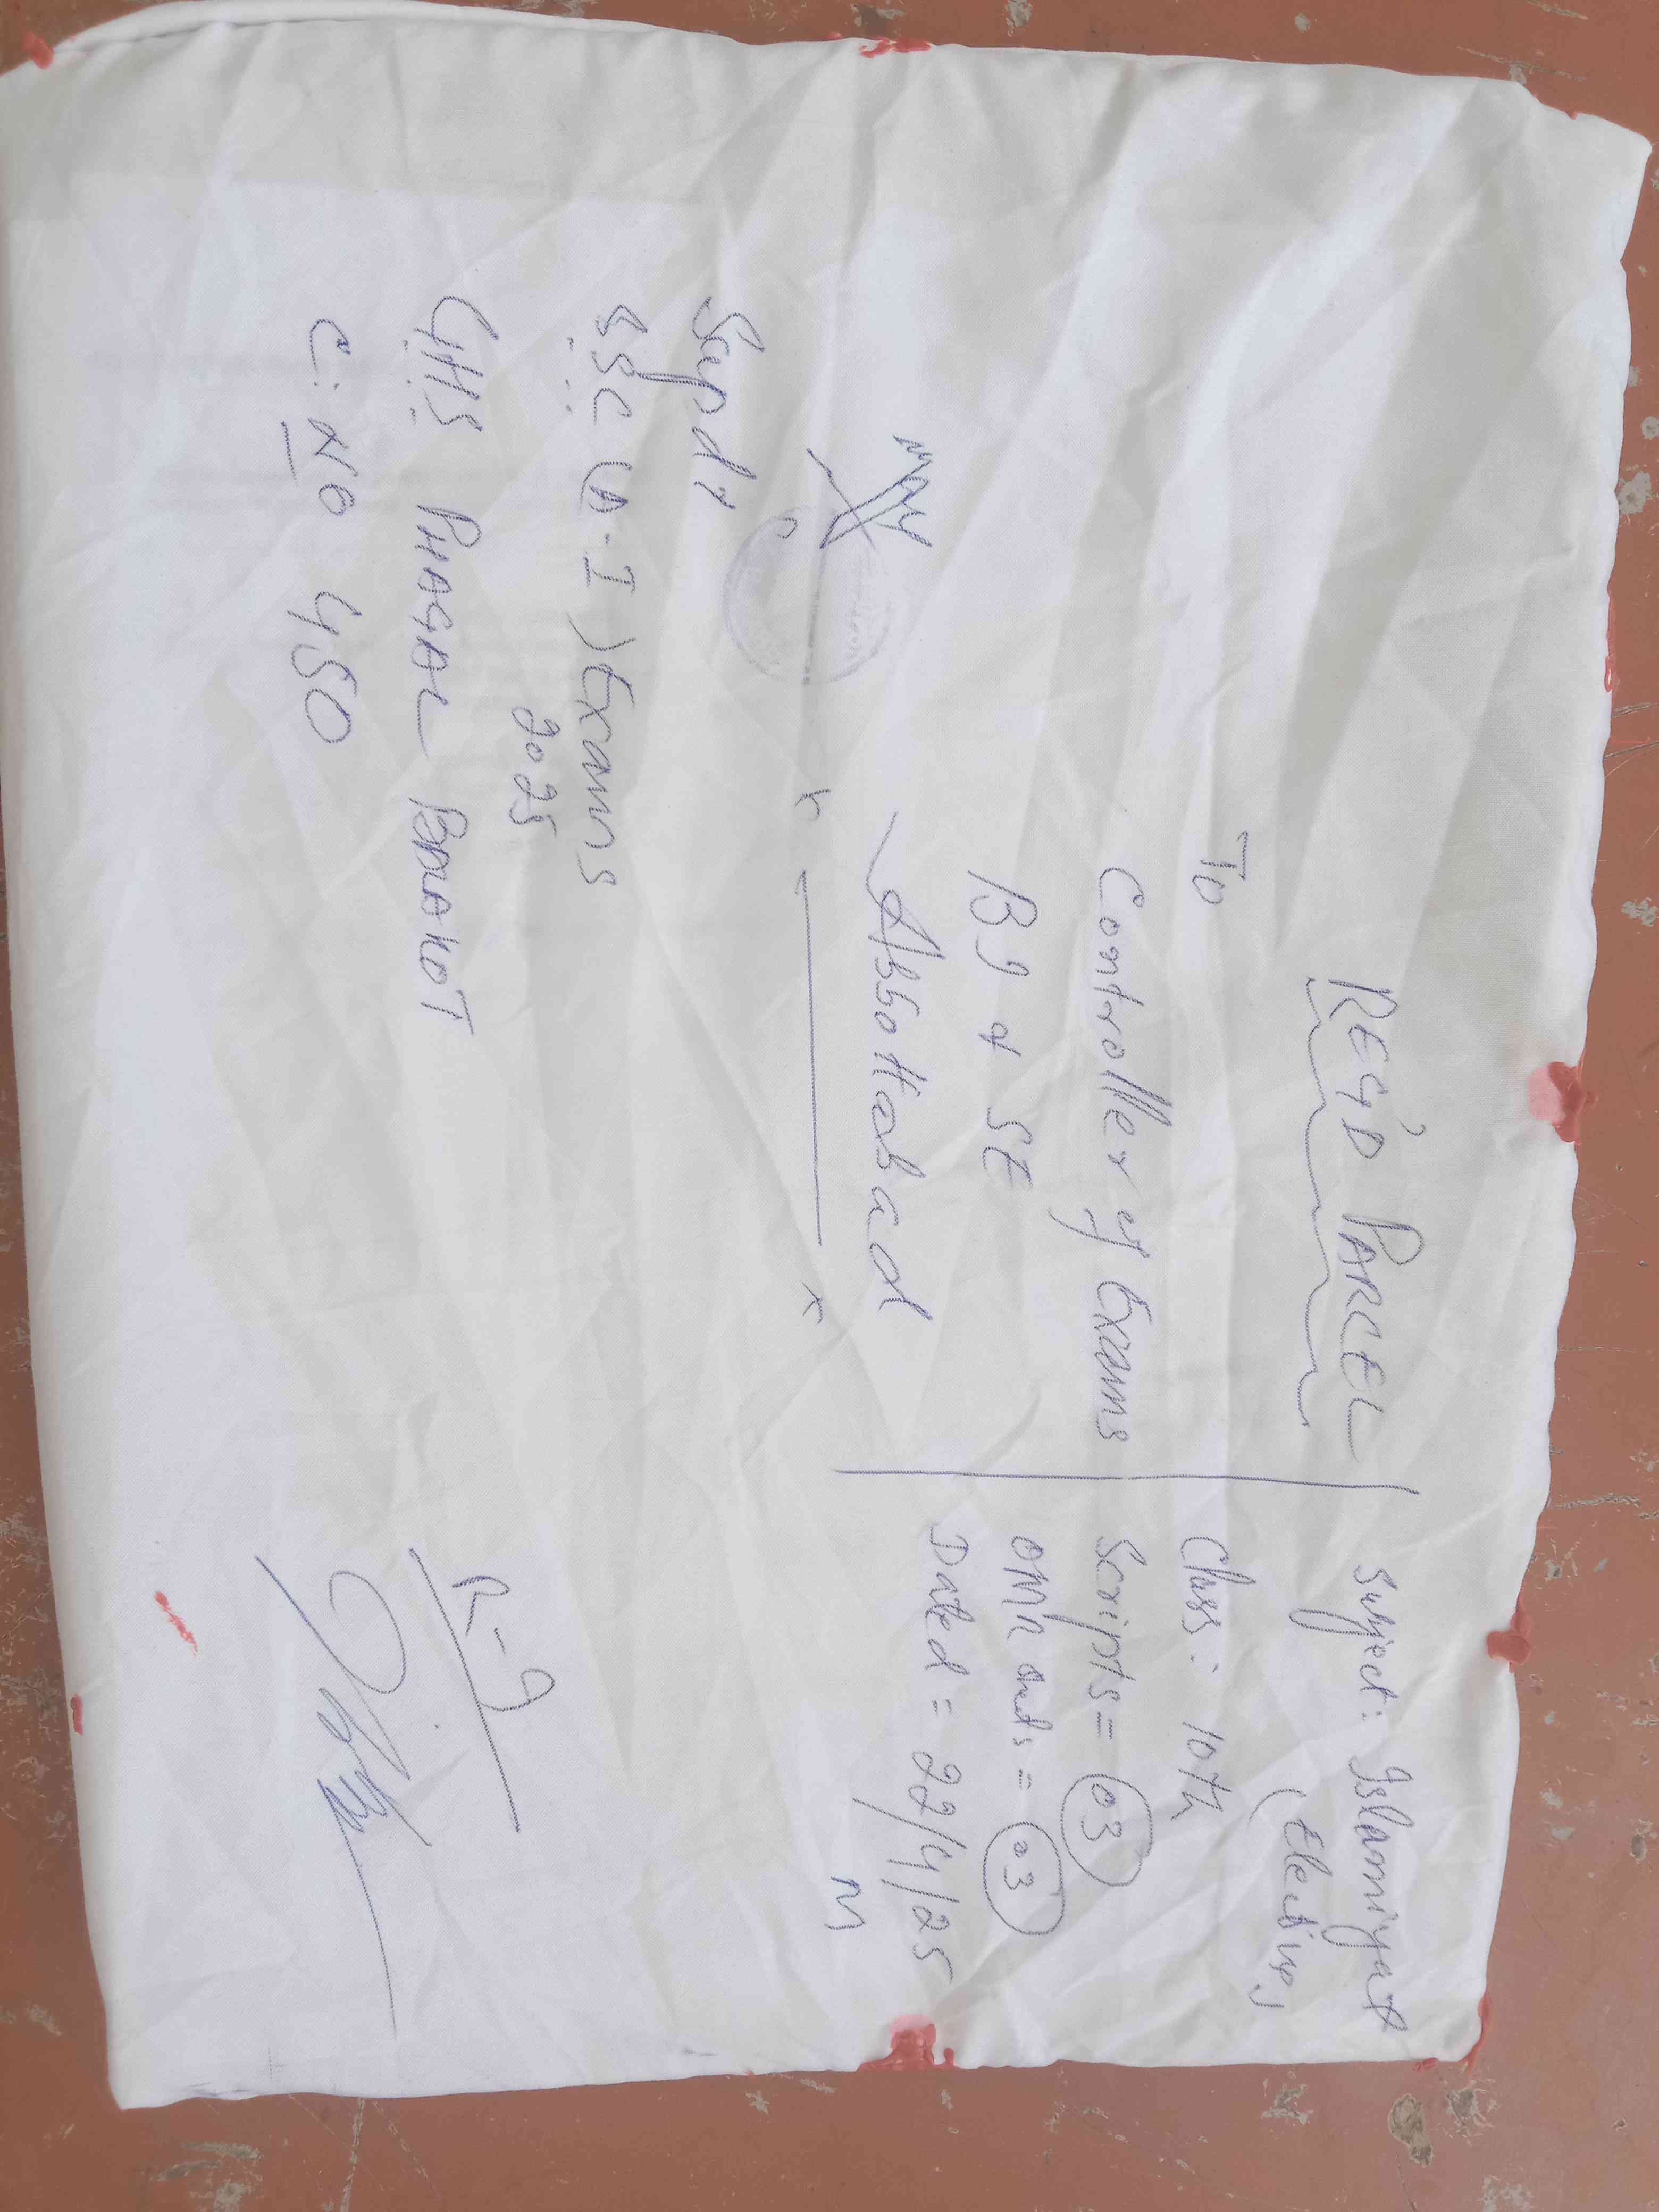 REG'D PARCEL
To
Controller of Exams
BI & SE
Abbottabad
Subject: Islamiyat
(Elective)
Class: 10th
Scripts = 03
OMR = 03
Dated = 22/4/25
M
Supdt
SSC (A-I) Exams
2025
GHS PHAGAL BALAKOT
C. No 450
R-9